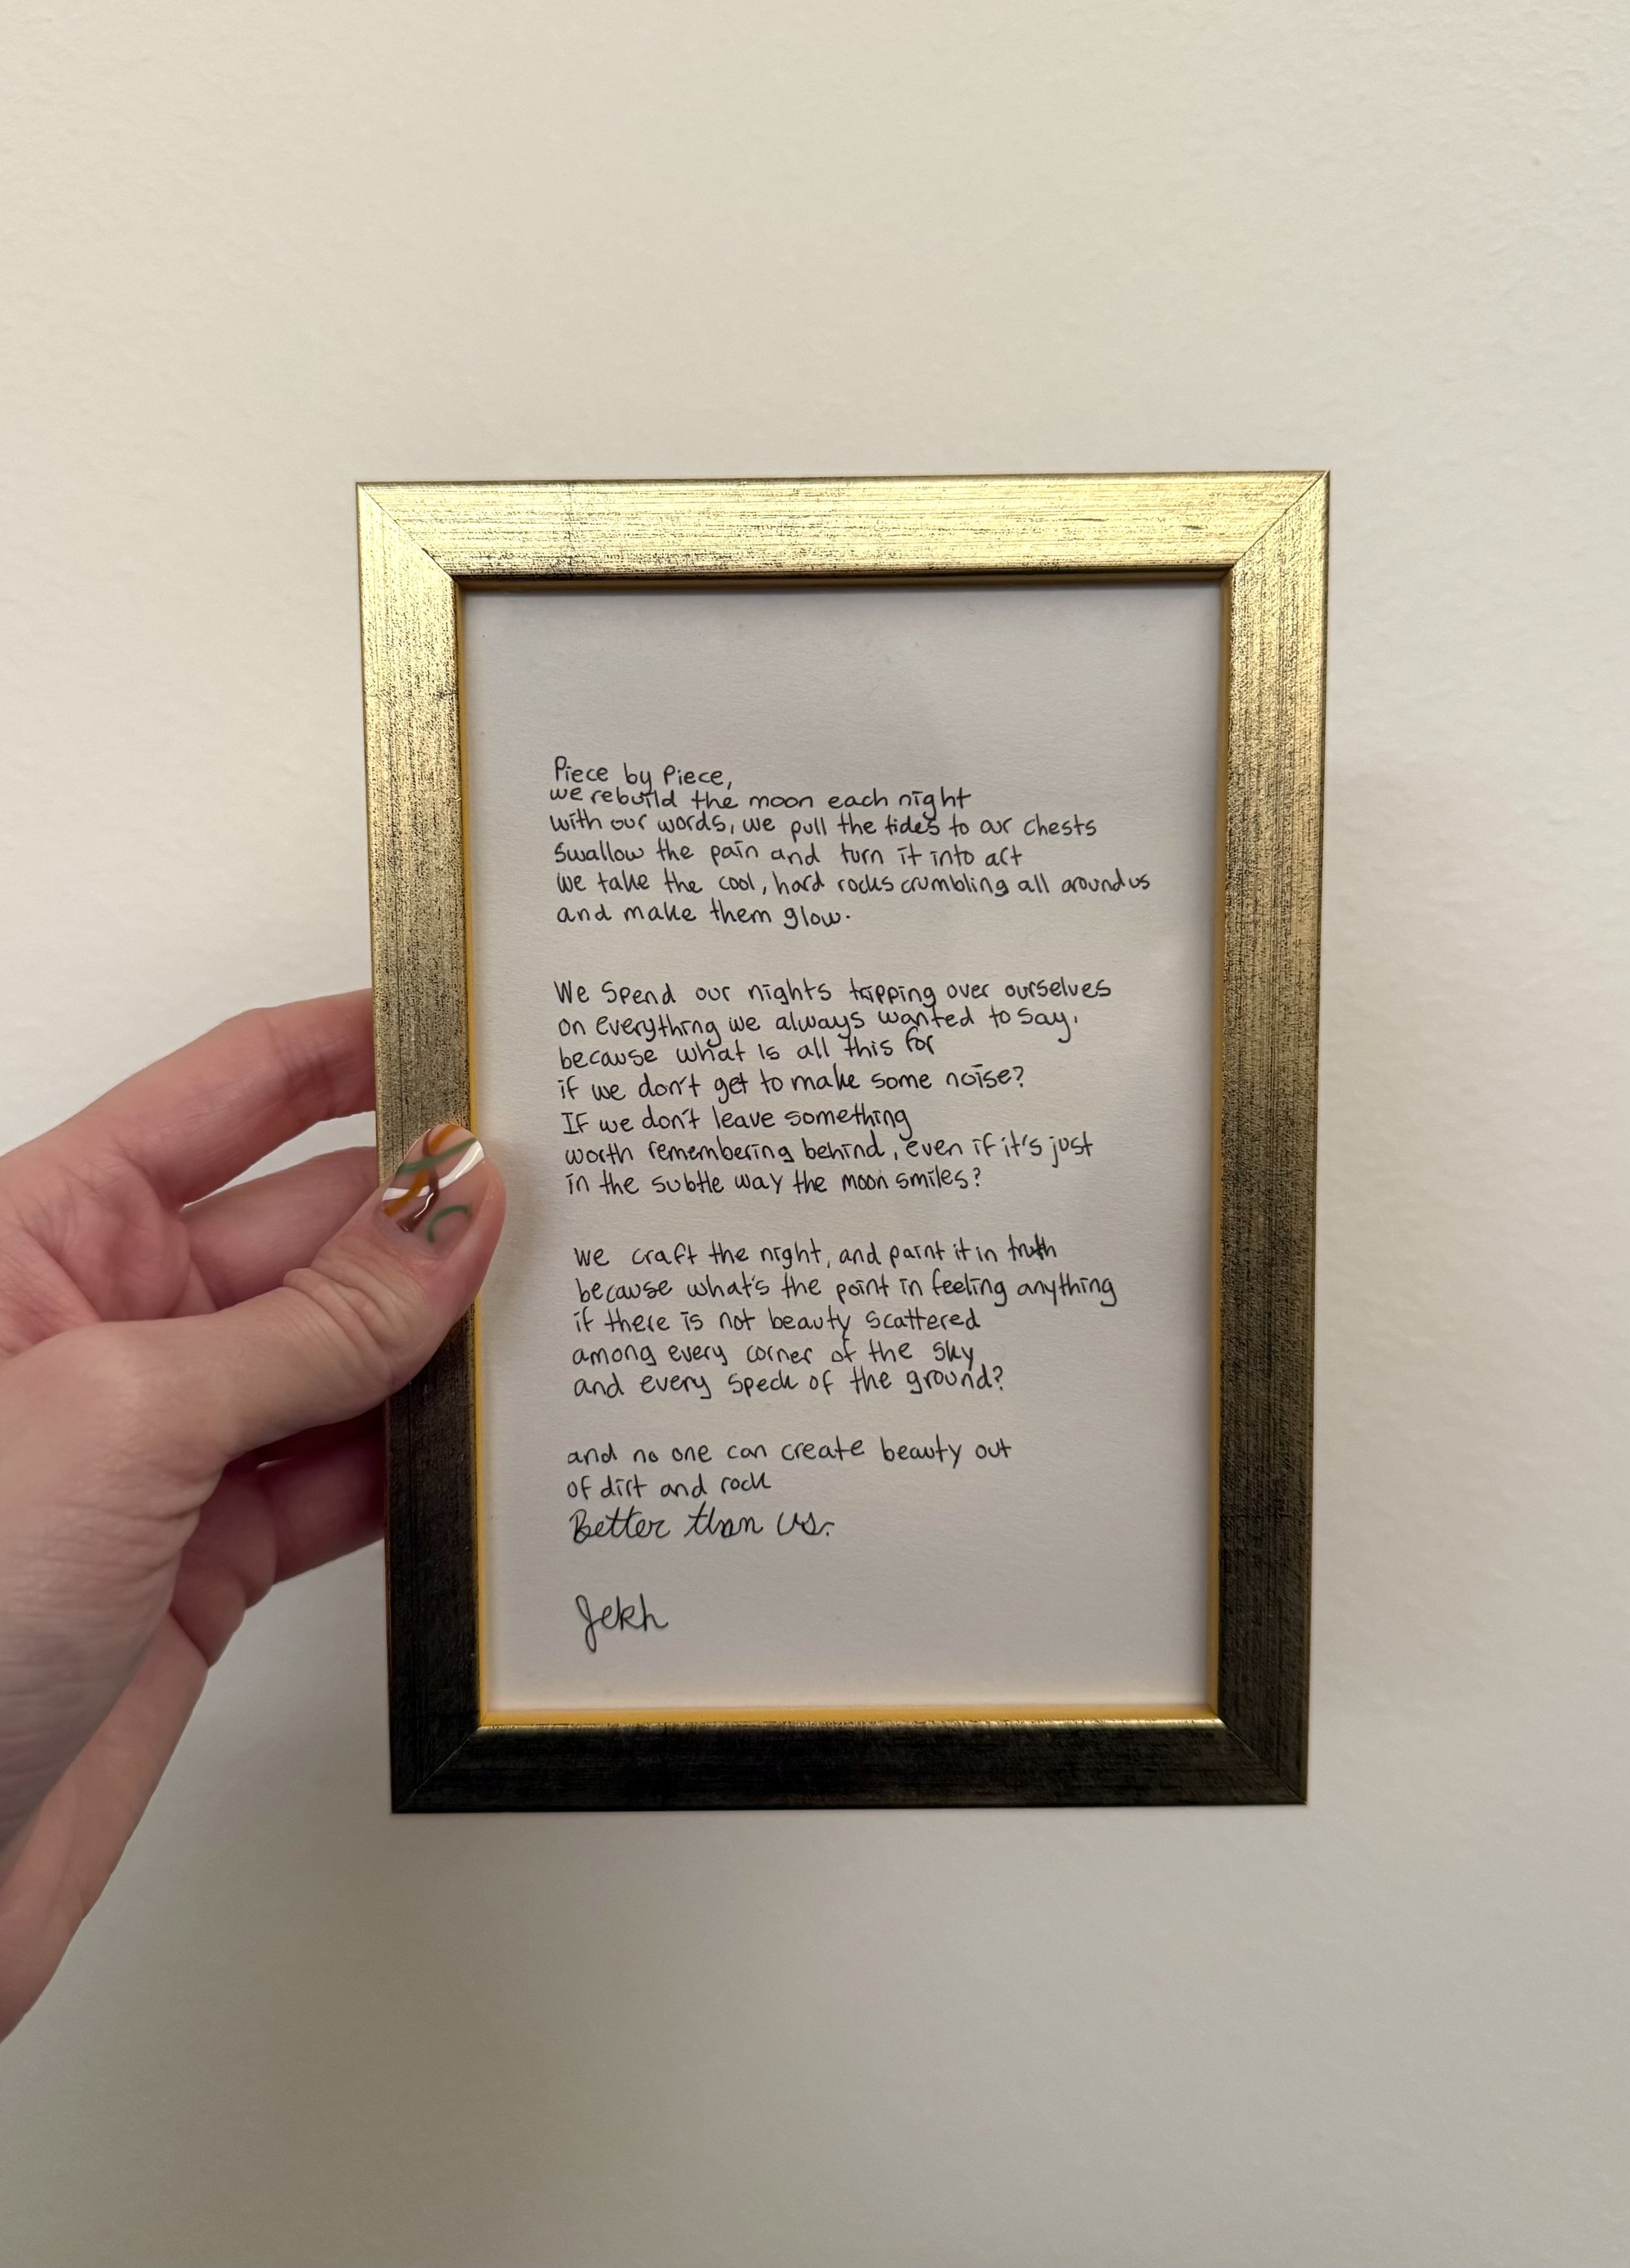 Piece by Piece,
we rebuild the moon each night
with our words, we pull the tides to our chests
swallow the pain and turn it into art
we take the cool, hard rocks crumbling all around us
and make them glow.
We spend our nights tripping over ourselves
on everything we always wanted to say.
because what is all this for
if we don't get to make some noise?
If we don't leave something
worth remembering behind, even if it's just
in the subtle way the moon smiles?
we craft the night, and paint it in truth
because what's the point in feeling anything
if there is not beauty scattered
among every corner of the sky
and every speck of the ground?
and no one can create beauty out
of dirt and rock
Better than us.
Jekh